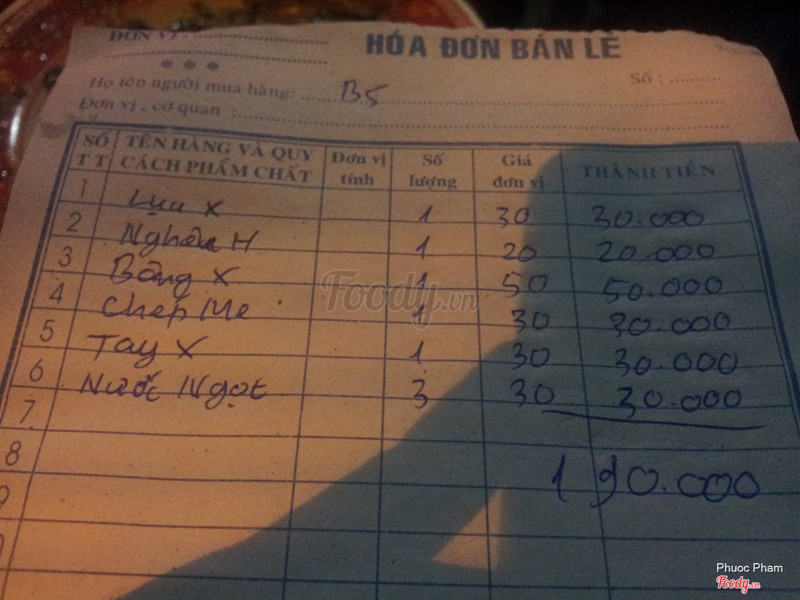 ĐƠN VỊ :
HÓA ĐƠN BÁN LẺ
Số :
Họ tên người mua hàng: B5
Đơn vị , cơ quan :
SỐ TT TÊN HÀNG VÀ QUY CÁCH PHẨM CHẤT Đơn vị tính Số lượng Giá đơn vị THÀNH TIỀN
1 Lụu X 1 30 30.000
2 Nghêu H 1 20 20.000
3 Bông X 1 50 50.000
4 Chép Me 1 30 30.000
5 Tay X 1 30 30.000
6 Nước Ngọt 3 30 30.000
7
8 190.000
9
Foody.vn
Phuoc Pham
Foody.vn